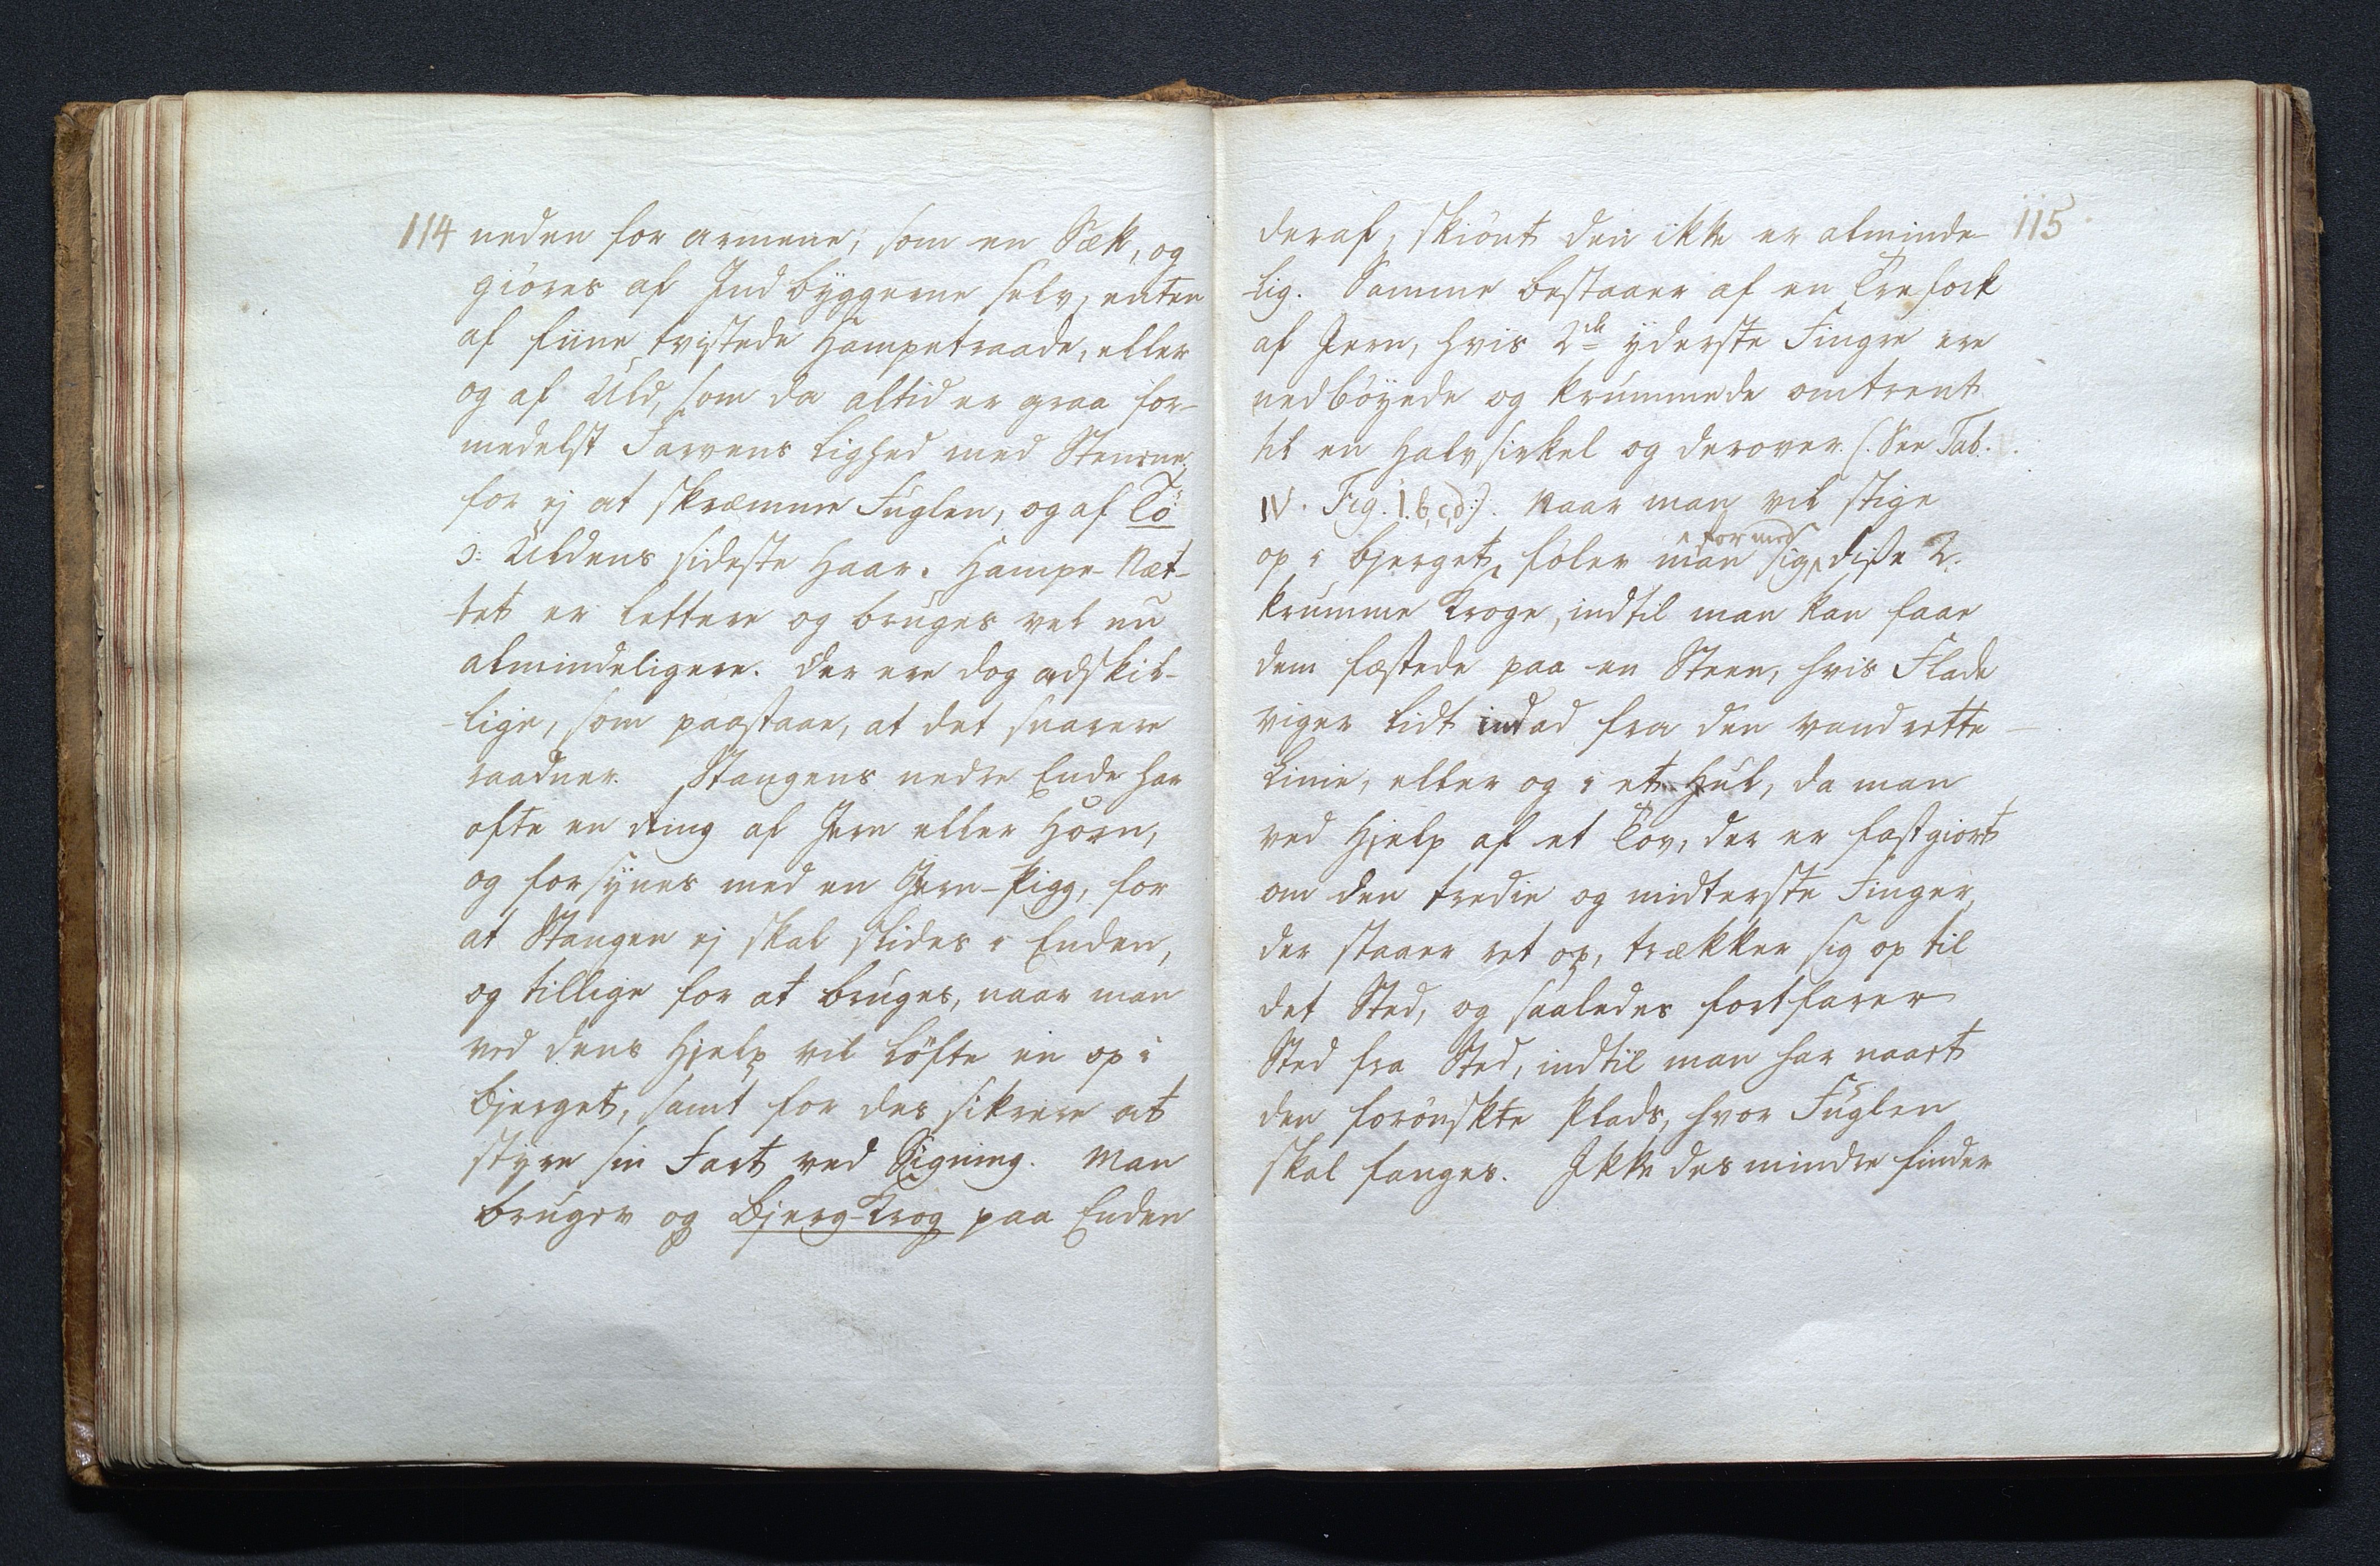 114
neden for armene; som en Sæk, og
giøres af Indbyggerne selv, enten
af fiine tvistede Hampetraade, eller
og af Uld, som da altid er graa for-
medelst Farvens Lighed med Stenene,
for ej at skræmme Fuglen, og af Tö
ɔ: Uldens sideste Haar. Hampe-Næt-
tet er lettere og bruges vel nu
almindeligere. Der ere dog adskil-
lige, som paastaae, at det snarere
raadner. Stangens nedre Ende har
ofte en Ring af Jern eller Horn,
og forsynes med en Jern-Pigg, for
at Stangen ej skal slides i Enden,
og tillige for at bruges, naar man
ved dens Hjelp vil løfte en op i
Bjerget, samt for des sikrere at
styre sin Fart ved Signing. Man
bruger og Bjerg-Krog paa Enden
115
deraf, skiönt den ikke er alminde-
lig. Samme bestaaer af en Trefork
af Jern, hvis 2de yderste Fingre ere
nedböyede og krummede omtrent
til en Halvsirkel og derover (: See Tab.
IV. Fig. 1. b, c, d:). Naar man vil stige
for med
op i Bjerget, föler man sig disse 2.
krumme Kroge, indtil man kan faae
dem fæstede paa en Steen, hvis Flade
viger lidt indad fra den vandrette
Linie, eller og i et Hul, da man
ved Hjelp af et Tov, der er fastgiort
om den tredie og midterste Finger,
der staaer ret op, trækker sig op til
det Sted, og saaledes fortfarer
Sted fra Sted, indtil man har naaet
den forönskte Plads, hvor Fuglen
skal fanges. Ikke desmindre finder